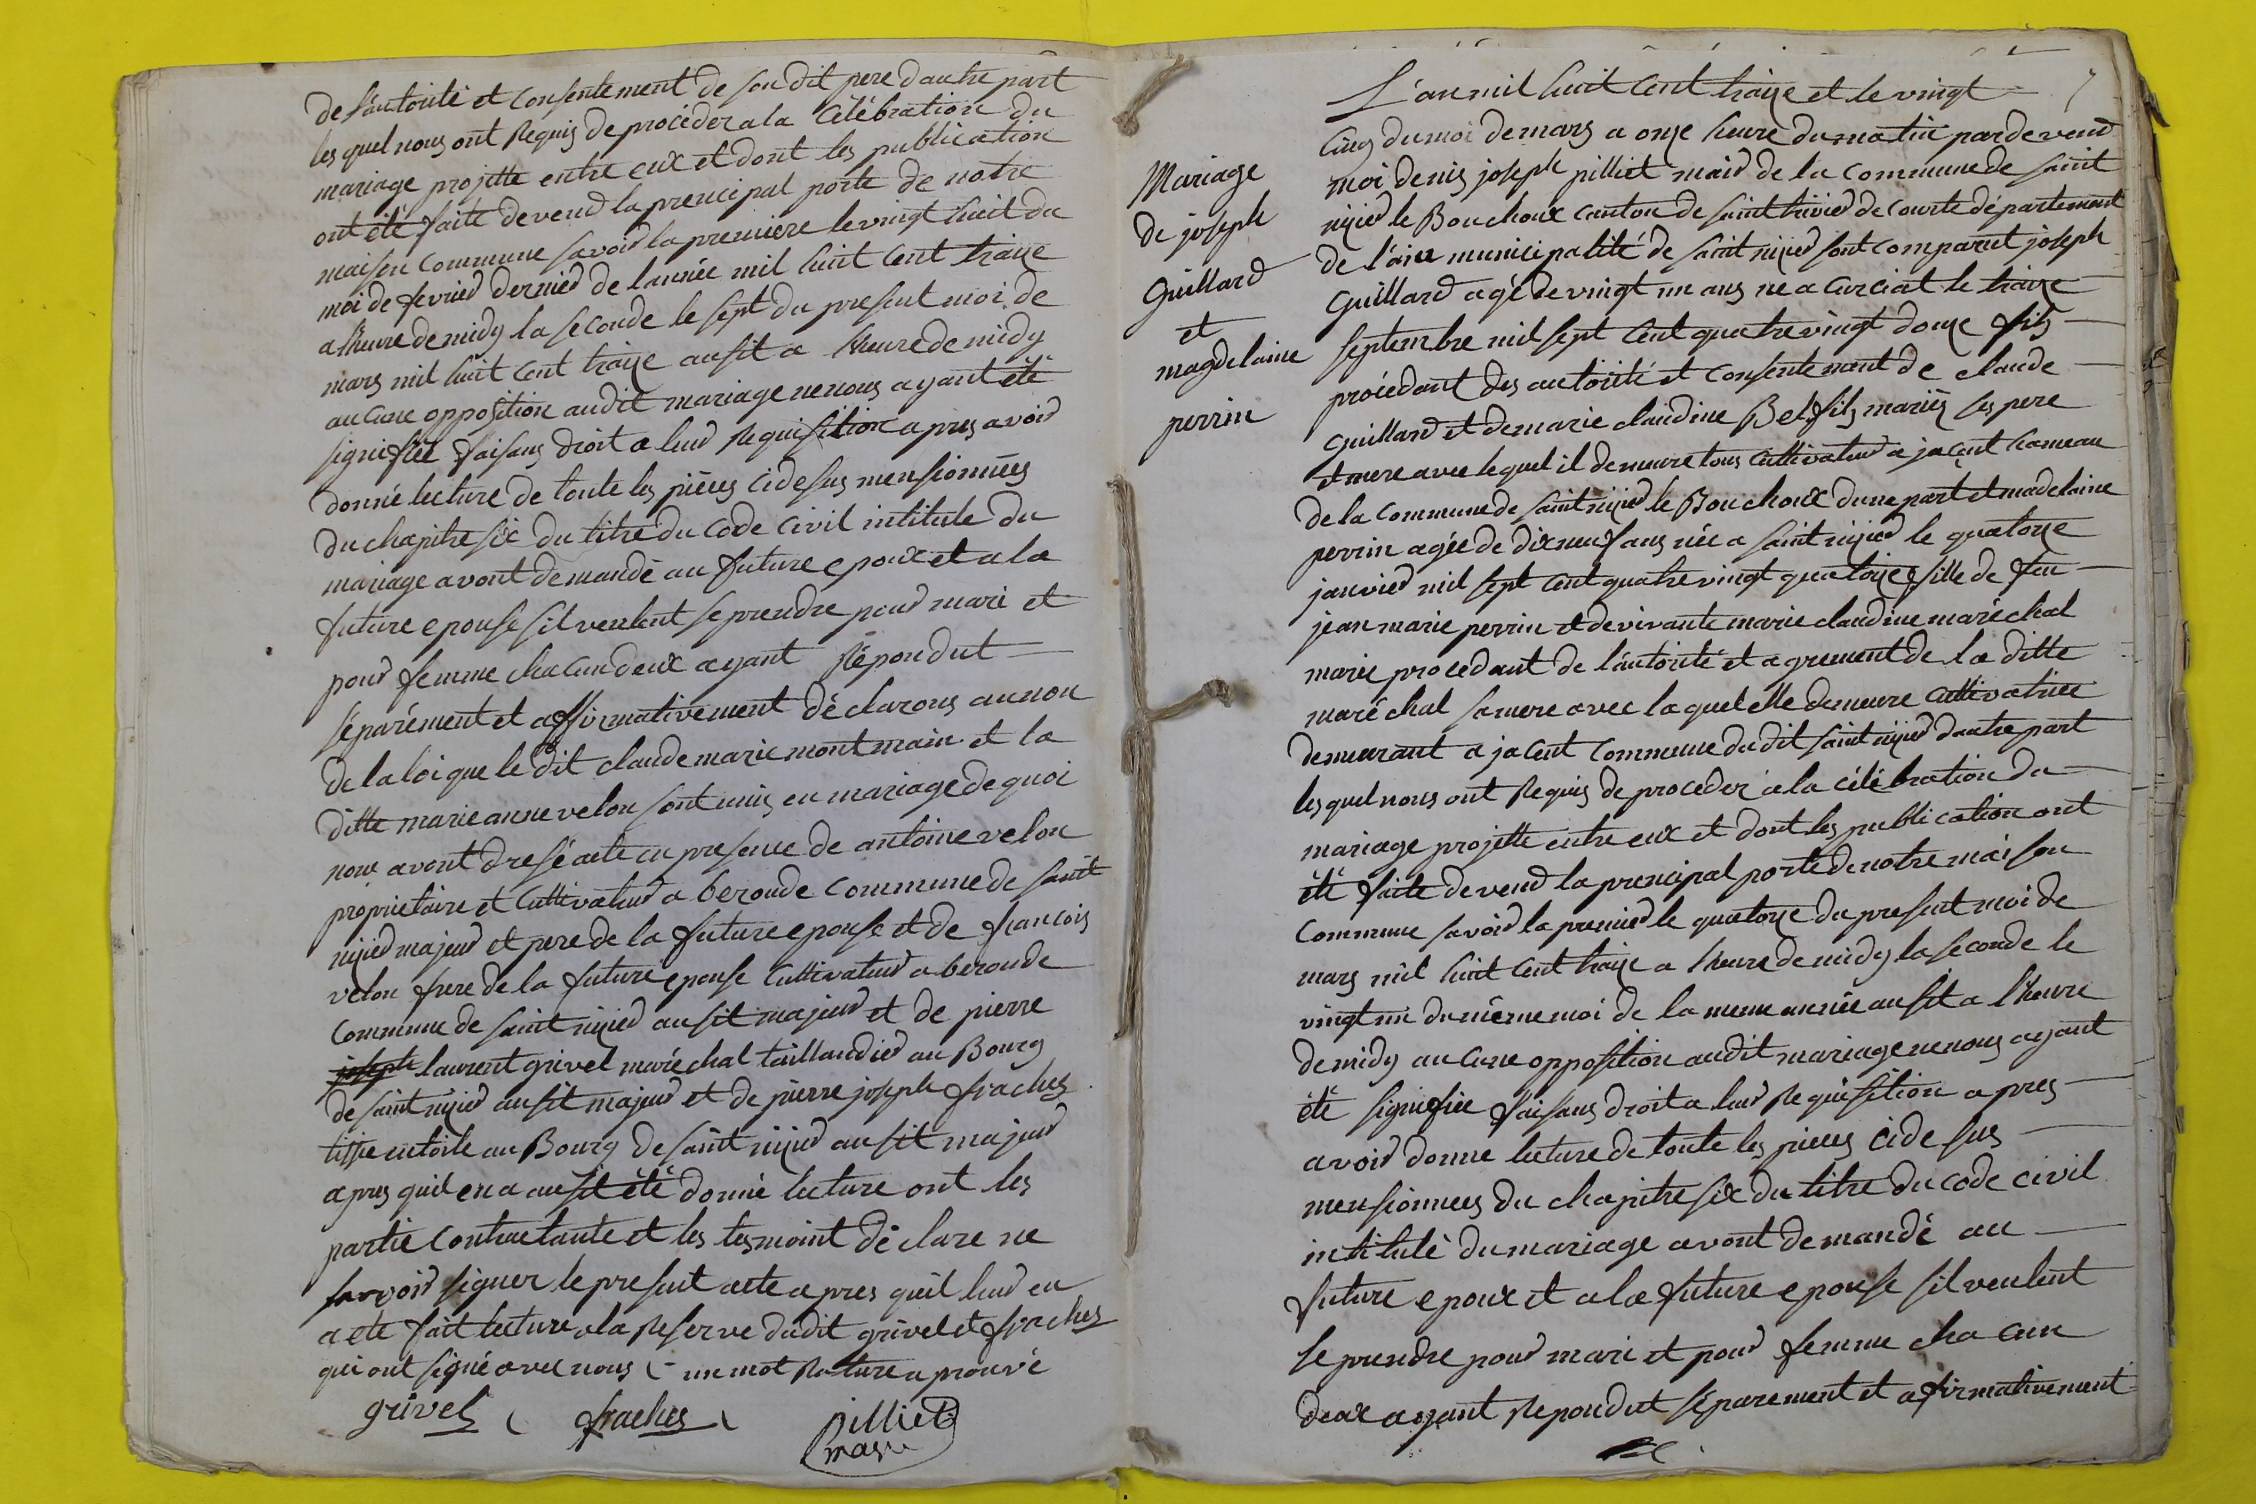 de l'autorité et consentement de son dit pere dautre part
les quel nous ont Requis de procéder a la Célébration du
mariage projetté entre eux et dont les publication
ont été faite devend la prencipal porte de notre
maison commune savoir la premiere le vingt huit du
moi de fevrier dernier de lannée mil huit cent traize
a lheure de midy la seconde le sept du present moi de
mars mil huit cent traize ausit a lheure de midy
aucune opposition audit mariage ne nous ayant été
signifiée faisans droit a leur Requisition apres avoir
donné lecture de toute les piéces cidesus mensionnées
du chapitre six du titre du code civil intitulé du
mariage avont demandé au future epoux et a la
future epouse sil veulent se prendre pour mari et
pour femme chacun deux ayant Répondut
séparément et affirmativement déclarons au non
de la loi que le dit claude marie montmain et la
ditte marie anne velon sont unis en mariage de quoi
nous avont dresé acte en presence de antoine velon
proprietaire et cultivateur a beronde commune de saint
nizier majeur et pere de la future epouse et de francois
velon frere de la future epouse cultivateur a beronde
commune de saint nizier ausit majeur et de pierre
joseph laurent grivel maréchal taillandier au Bourg
de saint nizier ausit majeur et de pierre joseph fraches
tissie en toile au Bourg de saint nizier ausit majeur
apres quil en a ausit été donné lecture ont les
partie contractante et les tesmoint déclare ne
savoir signer le present acte apres quil leur en
a ete fait lecture a la Reserve dudit grivel et fraches
qui ont signé avec nous un mot Rature aprouvé
grivel fraches pilliet
maire
7
Mariage
de joseph
Guillard
et
magdelaine
perrin
L'an mil huit cent traize et le vingt
cinq du moi de mars a onze heure du matin pardevend
moi denis joseph pilliet mair de la commune de saint
nizier le Bouchoux canton de saint trivier de courte département
de l'ain municipalité de saint nizier sont comparut joseph
Guillard agé de vingt un ans né a curciat le traize
septembre mil sept cent quatre vingt douze fils
procédant des autorité et consentement de claude
Guillard et de marie claudine Belfils mariés ses pere
et mere avec lequel il demeure tous cultivateur a jacent hameau
de la commune de saint nizier le Bouchoux dune part et madelaine
perrin agée de dix neuf ans née a saint nizier le quatorze
janvier mil sept cent quatre vingt quatorze fille de feu
jean marie perrin et de vivante marie claudine maréchal
marie procedant de l'autorité et agrement de la ditte
maréchal sa mere avec laquel elle demeure cultivatrice
demeurant a jacent commune du dit saint nizier dautre part
les quel nous ont Requis de proceder a la célébration du
mariage projetté entre eux et dont les publication ont
été faite devend la prencipal porte de notre maison
commune savoir la premier le quatorze du present moi de
mars mil huit cent traize a lheure de midy la seconde le
vingt un du même moi de la meme année ausit a l'heure
de midy aucune opposition audit mariage ne nous ayant
été signifiée faisans droit a leur Requisition apres
avoir donne lecture de toute les pieces cidesus
mensionnees du chapitre six du titre du code civil
intitulé du mariage avont demandé au
future epoux et a la future epouse sil veulent
se prendre pour mari et pour femme chacun
deux ayant Repondut séparement et afirmativement